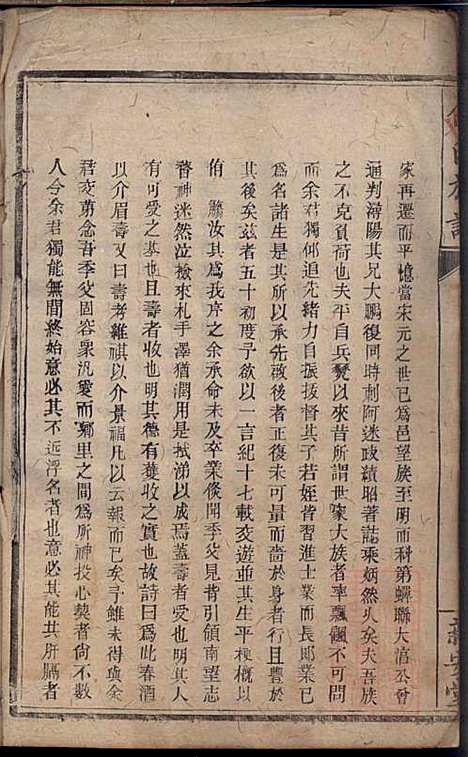 家再遷而平憶當宋元之世已為邑望族至明而科第蟬聯大信公曾
通判潯陽其兄大鵬復同時刺阿迷政績昭著誌乘炳然久矣夫吾族
之不克負荷也夫平自兵燹以來昔所謂世家大族者率飄颻不可問
而余君獨仰追先緒力自振拔督其子若姪皆習進士業而長郎業已
為名諸生是其所以承先啟後者正復未可量而啬於身者行且豊於
其後矣茲者五十初度予欲以一言紀十七載交遊並其生平梗概以
侑觴汝其為我序之余承命未及卒業倏聞季父見背引領南望志
瞀神迷然泣檢來札手澤猶潤用是拭涕以成焉蓋壽者受也明其人
有可受之基也壽者收也明其德有獲收之實也故詩曰為此春酒
以介眉壽又曰壽考維祺以介景福凡以云報而已矣予雖未得與余
君交第念吾季父固容衆汎愛而鄉里之間為所神投心契者尚不數
人今余君獨能無間終始意必其不近浮名者也意必其能其所胹者